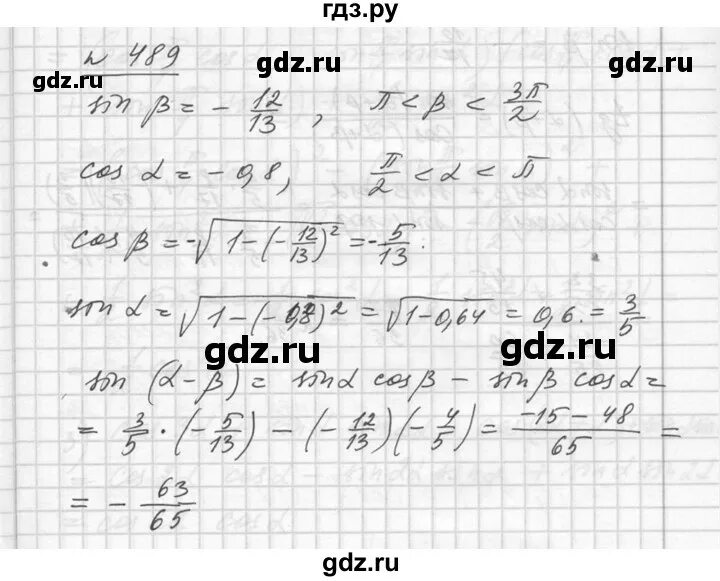 гдз.ру
N 489
gdz.ru gdz.ru
sin β = - 12/13, π < β < 3π/2
cos α = - 0,8, π/2 < α < π
cos β = -√(1-(-12/13)²) = -5/13.
sin α = √(1-(-0,8)²) = √(1-0,64) = 0,6. = 3/5
gdz.ru gdz.ru
sin (α-β) = sinα cosβ - sinβ cosα =
= 3/5 · (-5/13) - (-12/13)(-4/5) = (-15-48)/65 =
= - 63/65
gdz.ru gdz.ru
gdz.ru